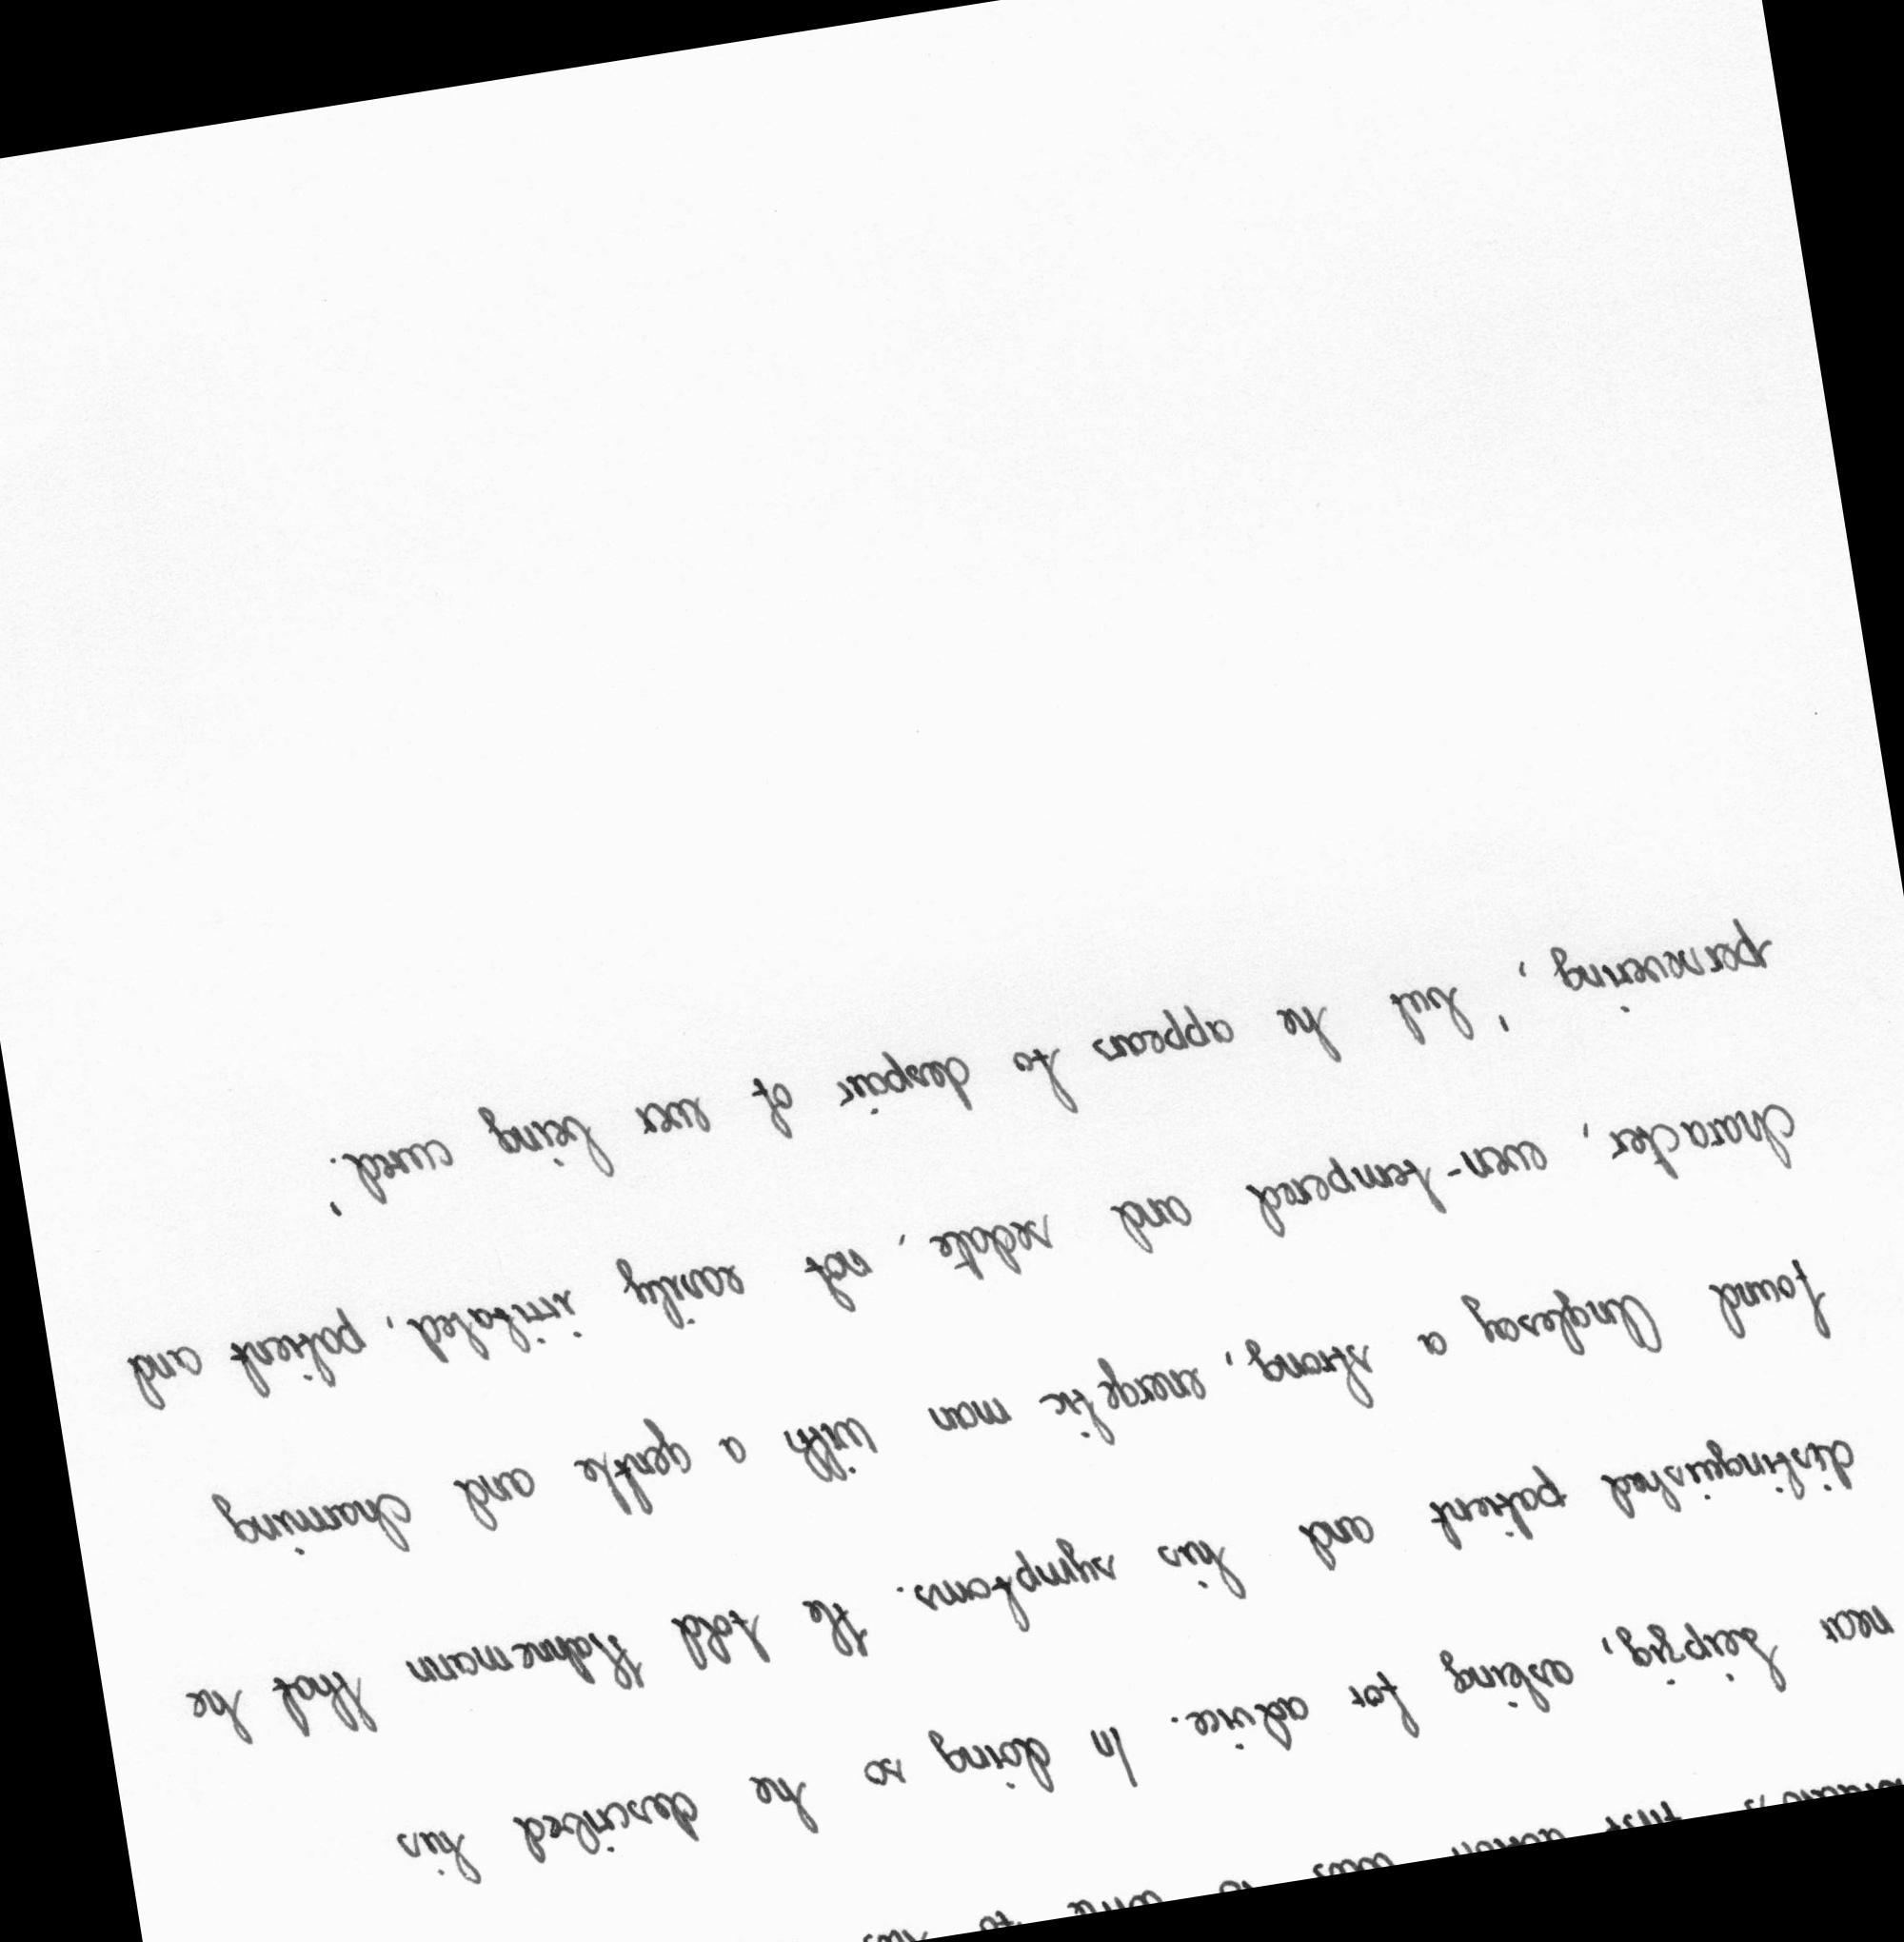 near Leipzig, asking for advice. In doing so he described his
distinguished patient and his symptoms. He told Hahnemann that he
found Anglesey a strong, energetic man with a gentle and charming
character, even-tempered and sedate, not easily irritated, patient and
persevering,' but he appears to despair of ever being cured.'